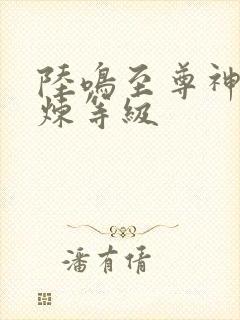 陸鳴至尊神
煉等級
潘有倩